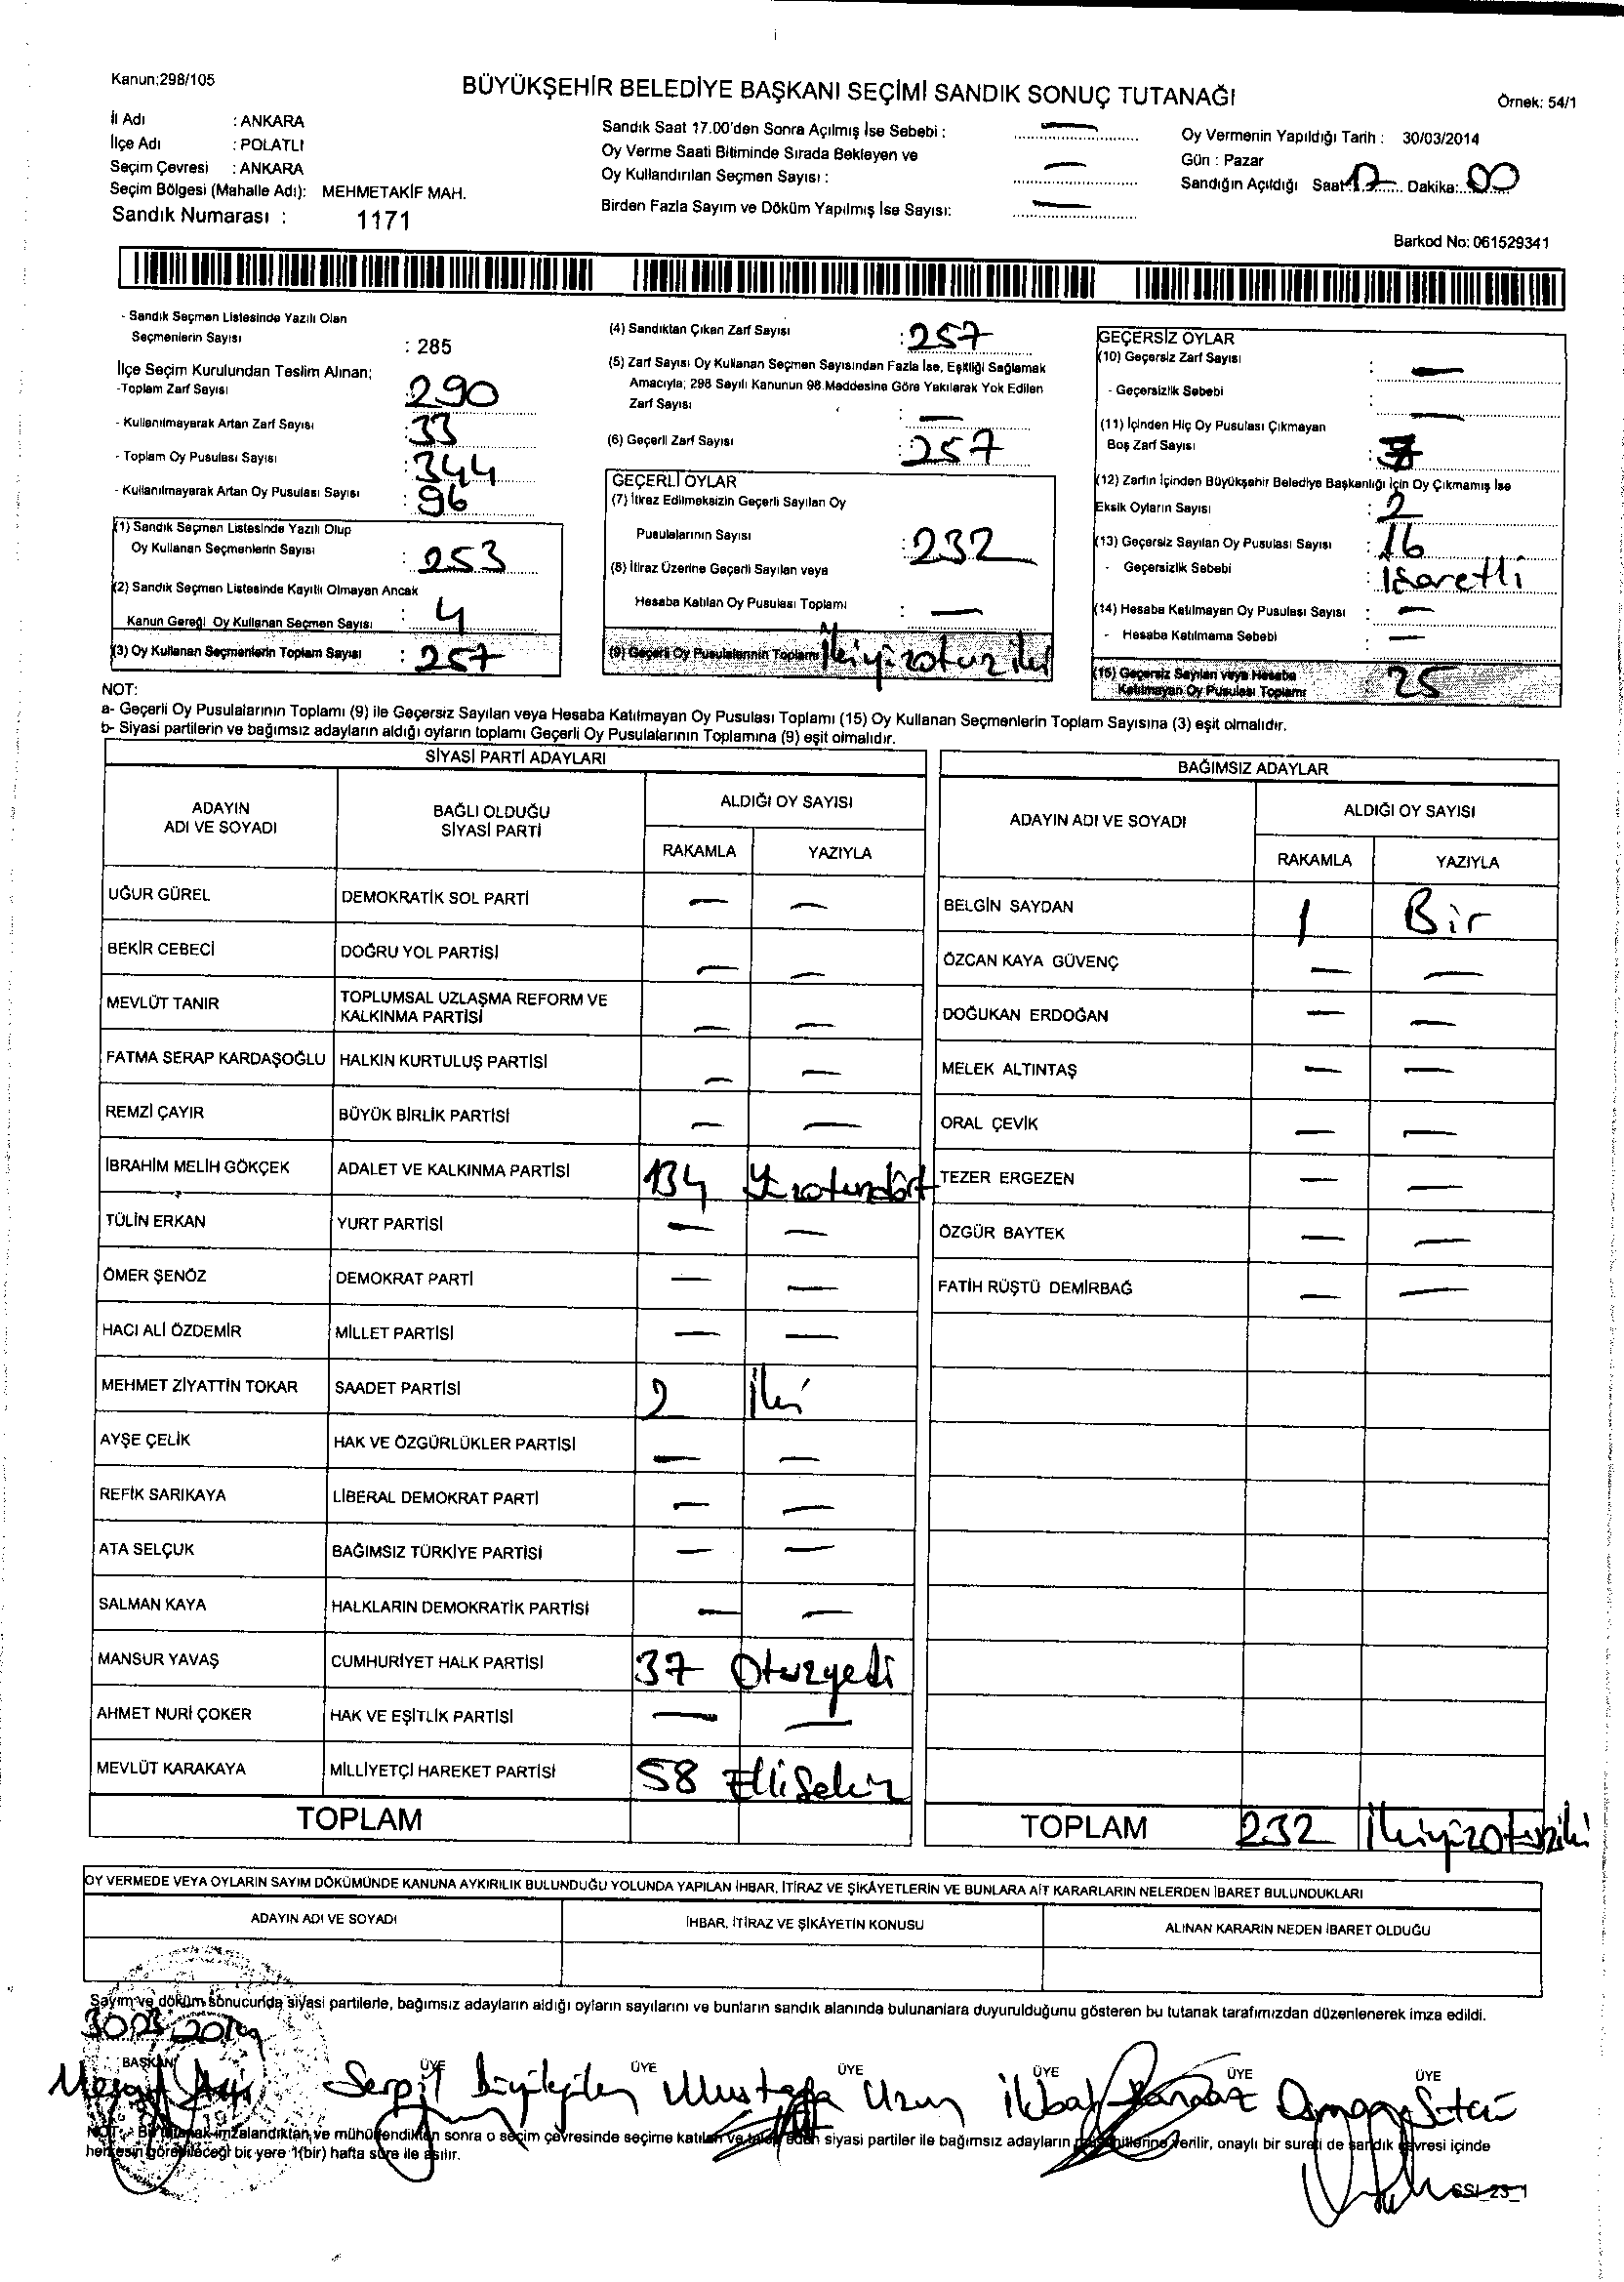 Kanun:298/105
BÜYÜKŞEHİR BELEDİYE BAŞKANI SEÇİMİ SANDIK SONUÇ TUTANAĞI
Örnek: 54/1
İl Adı : ANKARA
İlçe Adı : POLATLI
Seçim Çevresi : ANKARA
Seçim Bölgesi (Mahalle Adı): MEHMETAKİF MAH.
Sandık Numarası : 1171
Sandık Saat 17.00'den Sonra Açılmış İse Sebebi : —
Oy Verme Saati Bitiminde Sırada Bekleyen ve
Oy Kullandırılan Seçmen Sayısı : —
Birden Fazla Sayım ve Döküm Yapılmış İse Sayısı: —
Oy Vermenin Yapıldığı Tarih : 30/03/2014
Gün : Pazar
Sandığın Açıldığı Saat 17 Dakika: 00
Barkod No: 061529341
- Sandık Seçmen Listesinde Yazılı Olan
Seçmenlerin Sayısı : 285
İlçe Seçim Kurulundan Teslim Alınan;
-Toplam Zarf Sayısı 290
- Kullanılmayarak Artan Zarf Sayısı : 33
- Toplam Oy Pusulası Sayısı : 344
- Kullanılmayarak Artan Oy Pusulası Sayısı : 96
(1) Sandık Seçmen Listesinde Yazılı Olup
Oy Kullanan Seçmenlerin Sayısı : 253
(2) Sandık Seçmen Listesinde Kayıtlı Olmayan Ancak
Kanun Gereği Oy Kullanan Seçmen Sayısı : 4
(3) Oy Kullanan Seçmenlerin Toplam Sayısı : 257
(4) Sandıktan Çıkan Zarf Sayısı : 257
(5) Zarf Sayısı Oy Kullanan Seçmen Sayısından Fazla İse, Eşitliği Sağlamak
Amacıyla; 298 Sayılı Kanunun 98.Maddesine Göre Yakılarak Yok Edilen
Zarf Sayısı : —
(6) Geçerli Zarf Sayısı : 257
GEÇERLİ OYLAR
(7) İtiraz Edilmeksizin Geçerli Sayılan Oy
Pusulalarının Sayısı : 232
(8) İtiraz Üzerine Geçerli Sayılan veya
Hesaba Katılan Oy Pusulası Toplamı : —
(9) Geçerli Oy Pusulalarının Toplamı İkiyüzotuziki
GEÇERSİZ OYLAR
(10) Geçersiz Zarf Sayısı : —
- Geçersizlik Sebebi : —
(11) İçinden Hiç Oy Pusulası Çıkmayan
Boş Zarf Sayısı : 7
(12) Zarfın İçinden Büyükşehir Belediye Başkanlığı İçin Oy Çıkmamış İse
Eksik Oyların Sayısı : 2
(13) Geçersiz Sayılan Oy Pusulası Sayısı : 16
- Geçersizlik Sebebi : İşaretli
(14) Hesaba Katılmayan Oy Pusulası Sayısı : —
- Hesaba Katılmama Sebebi : —
(15) Geçersiz Sayılan veya Hesaba
Katılmayan Oy Pusulası Toplamı 25
NOT:
a- Geçerli Oy Pusulalarının Toplamı (9) ile Geçersiz Sayılan veya Hesaba Katılmayan Oy Pusulası Toplamı (15) Oy Kullanan Seçmenlerin Toplam Sayısına (3) eşit olmalıdır.
b- Siyasi partilerin ve bağımsız adayların aldığı oyların toplamı Geçerli Oy Pusulalarının Toplamına (9) eşit olmalıdır.
SİYASİ PARTİ ADAYLARI
ADAYIN ADI VE SOYADI
BAĞLI OLDUĞU SİYASİ PARTİ
ALDIĞI OY SAYISI
RAKAMLA YAZIYLA
UĞUR GÜREL DEMOKRATİK SOL PARTİ — —
BEKİR CEBECİ DOĞRU YOL PARTİSİ — —
MEVLÜT TANIR TOPLUMSAL UZLAŞMA REFORM VE KALKINMA PARTİSİ — —
FATMA SERAP KARDAŞOĞLU HALKIN KURTULUŞ PARTİSİ — —
REMZİ ÇAYIR BÜYÜK BİRLİK PARTİSİ — —
İBRAHİM MELİH GÖKÇEK ADALET VE KALKINMA PARTİSİ 134 Yüzotuzdört
TÜLİN ERKAN YURT PARTİSİ — —
ÖMER ŞENÖZ DEMOKRAT PARTİ — —
HACI ALİ ÖZDEMİR MİLLET PARTİSİ — —
MEHMET ZİYATTİN TOKAR SAADET PARTİSİ 2 İki
AYŞE ÇELİK HAK VE ÖZGÜRLÜKLER PARTİSİ — —
REFİK SARIKAYA LİBERAL DEMOKRAT PARTİ — —
ATA SELÇUK BAĞIMSIZ TÜRKİYE PARTİSİ — —
SALMAN KAYA HALKLARIN DEMOKRATİK PARTİSİ — —
MANSUR YAVAŞ CUMHURİYET HALK PARTİSİ 37 Otuzyedi
AHMET NURİ ÇOKER HAK VE EŞİTLİK PARTİSİ — —
MEVLÜT KARAKAYA MİLLİYETÇİ HAREKET PARTİSİ 58 Ellisekiz
TOPLAM
BAĞIMSIZ ADAYLAR
ADAYIN ADI VE SOYADI
ALDIĞI OY SAYISI
RAKAMLA YAZIYLA
BELGİN SAYDAN 1 Bir
ÖZCAN KAYA GÜVENÇ — —
DOĞUKAN ERDOĞAN — —
MELEK ALTINTAŞ — —
ORAL ÇEVİK — —
TEZER ERGEZEN — —
ÖZGÜR BAYTEK — —
FATİH RÜŞTÜ DEMİRBAĞ — —
TOPLAM 232 İkiyüzotuziki
OY VERMEDE VEYA OYLARIN SAYIM DÖKÜMÜNDE KANUNA AYKIRILIK BULUNDUĞU YOLUNDA YAPILAN İHBAR, İTİRAZ VE ŞİKÂYETLERİN VE BUNLARA AİT KARARLARIN NELERDEN İBARET BULUNDUKLARI
ADAYIN ADI VE SOYADI
İHBAR, İTİRAZ VE ŞİKÂYETİN KONUSU
ALINAN KARARIN NEDEN İBARET OLDUĞU
Sayım ve döküm sonucunda siyasi partilerle, bağımsız adayların aldığı oyların sayılarını ve bunların sandık alanında bulunanlara duyurulduğunu gösteren bu tutanak tarafımızdan düzenlenerek imza edildi.
30.03.2014
BAŞKAN ÜYE ÜYE ÜYE ÜYE ÜYE ÜYE
Serpil Mustafa Uzun Osman
NOT: Bu tutanak imzalandıktan ve mühürlendikten sonra o seçim çevresinde seçime katılan ve talep eden siyasi partiler ile bağımsız adayların verilir, onaylı bir sureti de sandık çevresi içinde
herkesin görebileceği bir yere 1(bir) hafta süre ile asılır.
SSI_23_1